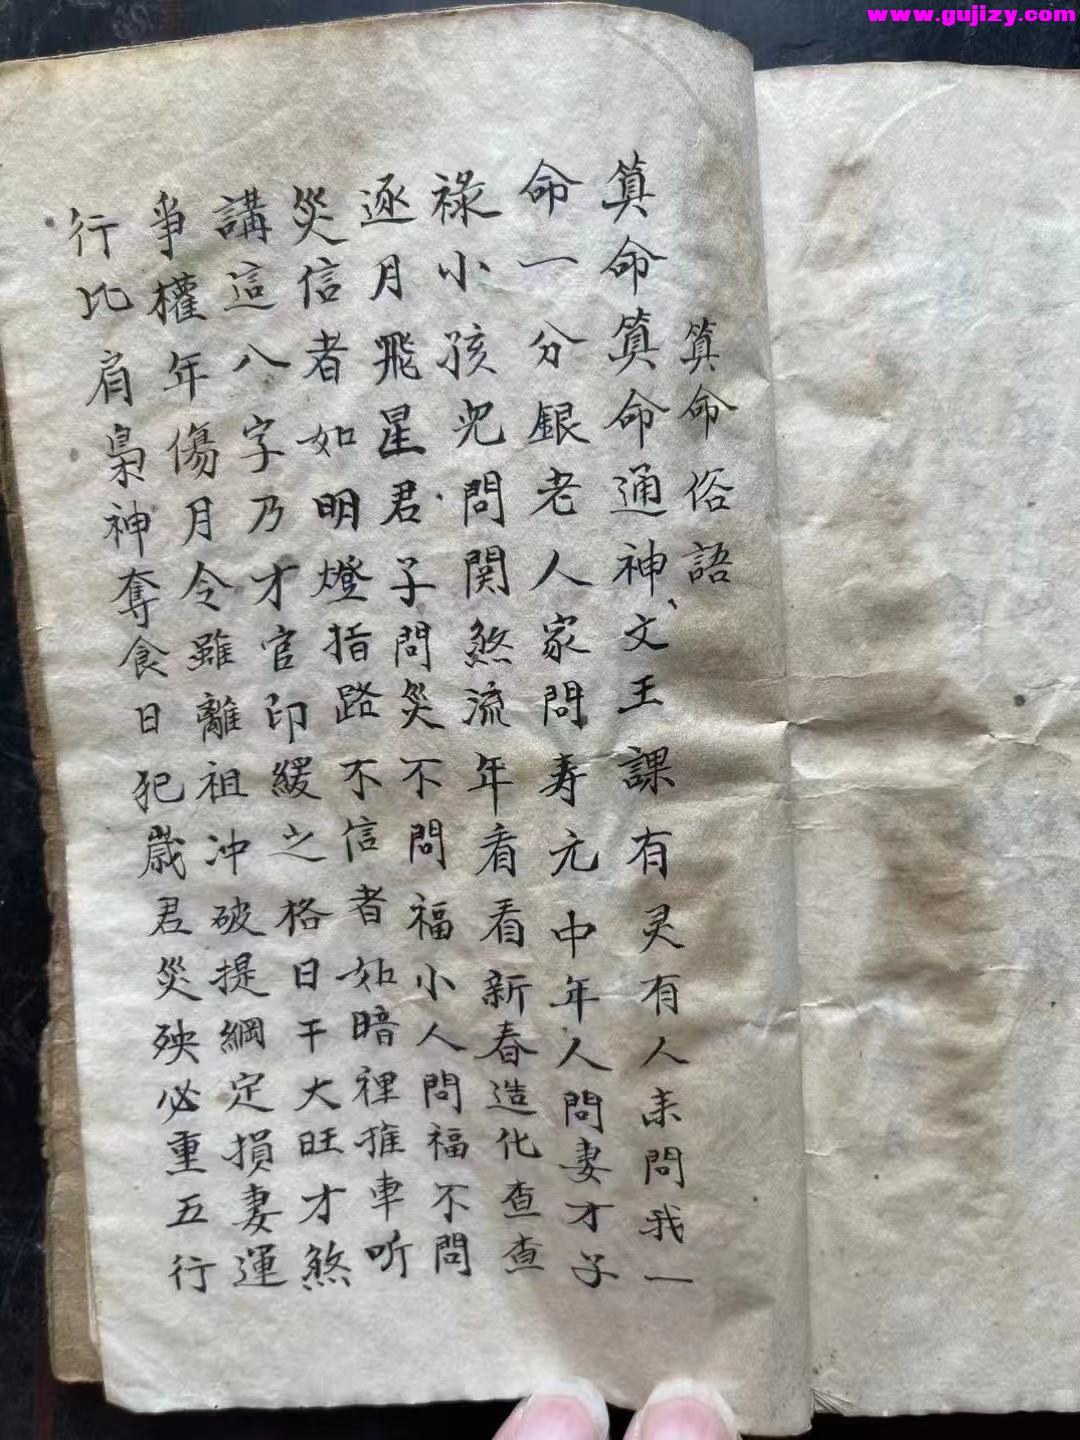 www.gujizy.com
算命俗語
算命算命通神、文王課有灵有人来問我一
命一分銀老人家問寿元中年人問妻才子
祿小孩児問関煞流年看看新春造化查查
逐月飛星君子問災不問福小人問福不問
災信者如明燈指路不信者如暗裡推車听
講這八字乃才官印緩之格日干大旺才煞
爭權年傷月令雖離祖沖破提綱定損妻運
行比肩梟神奪食日犯歲君災殃必重五行